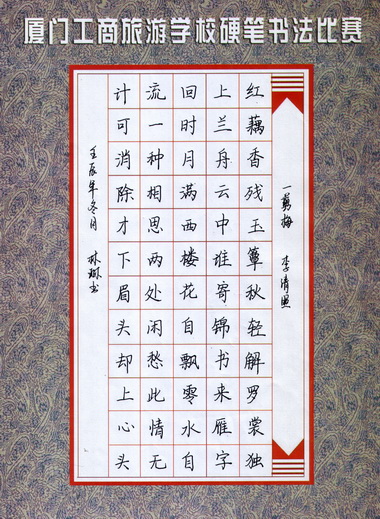 厦门工商旅游学校硬笔书法比赛
一剪梅 李清照
红藕香残玉簟秋轻解罗裳独
上兰舟云中谁寄锦书来雁字
回时月满西楼花自飘零水自
流一种相思两处闲愁此情无
计可消除才下眉头却上心头
壬辰年冬月 林琳书